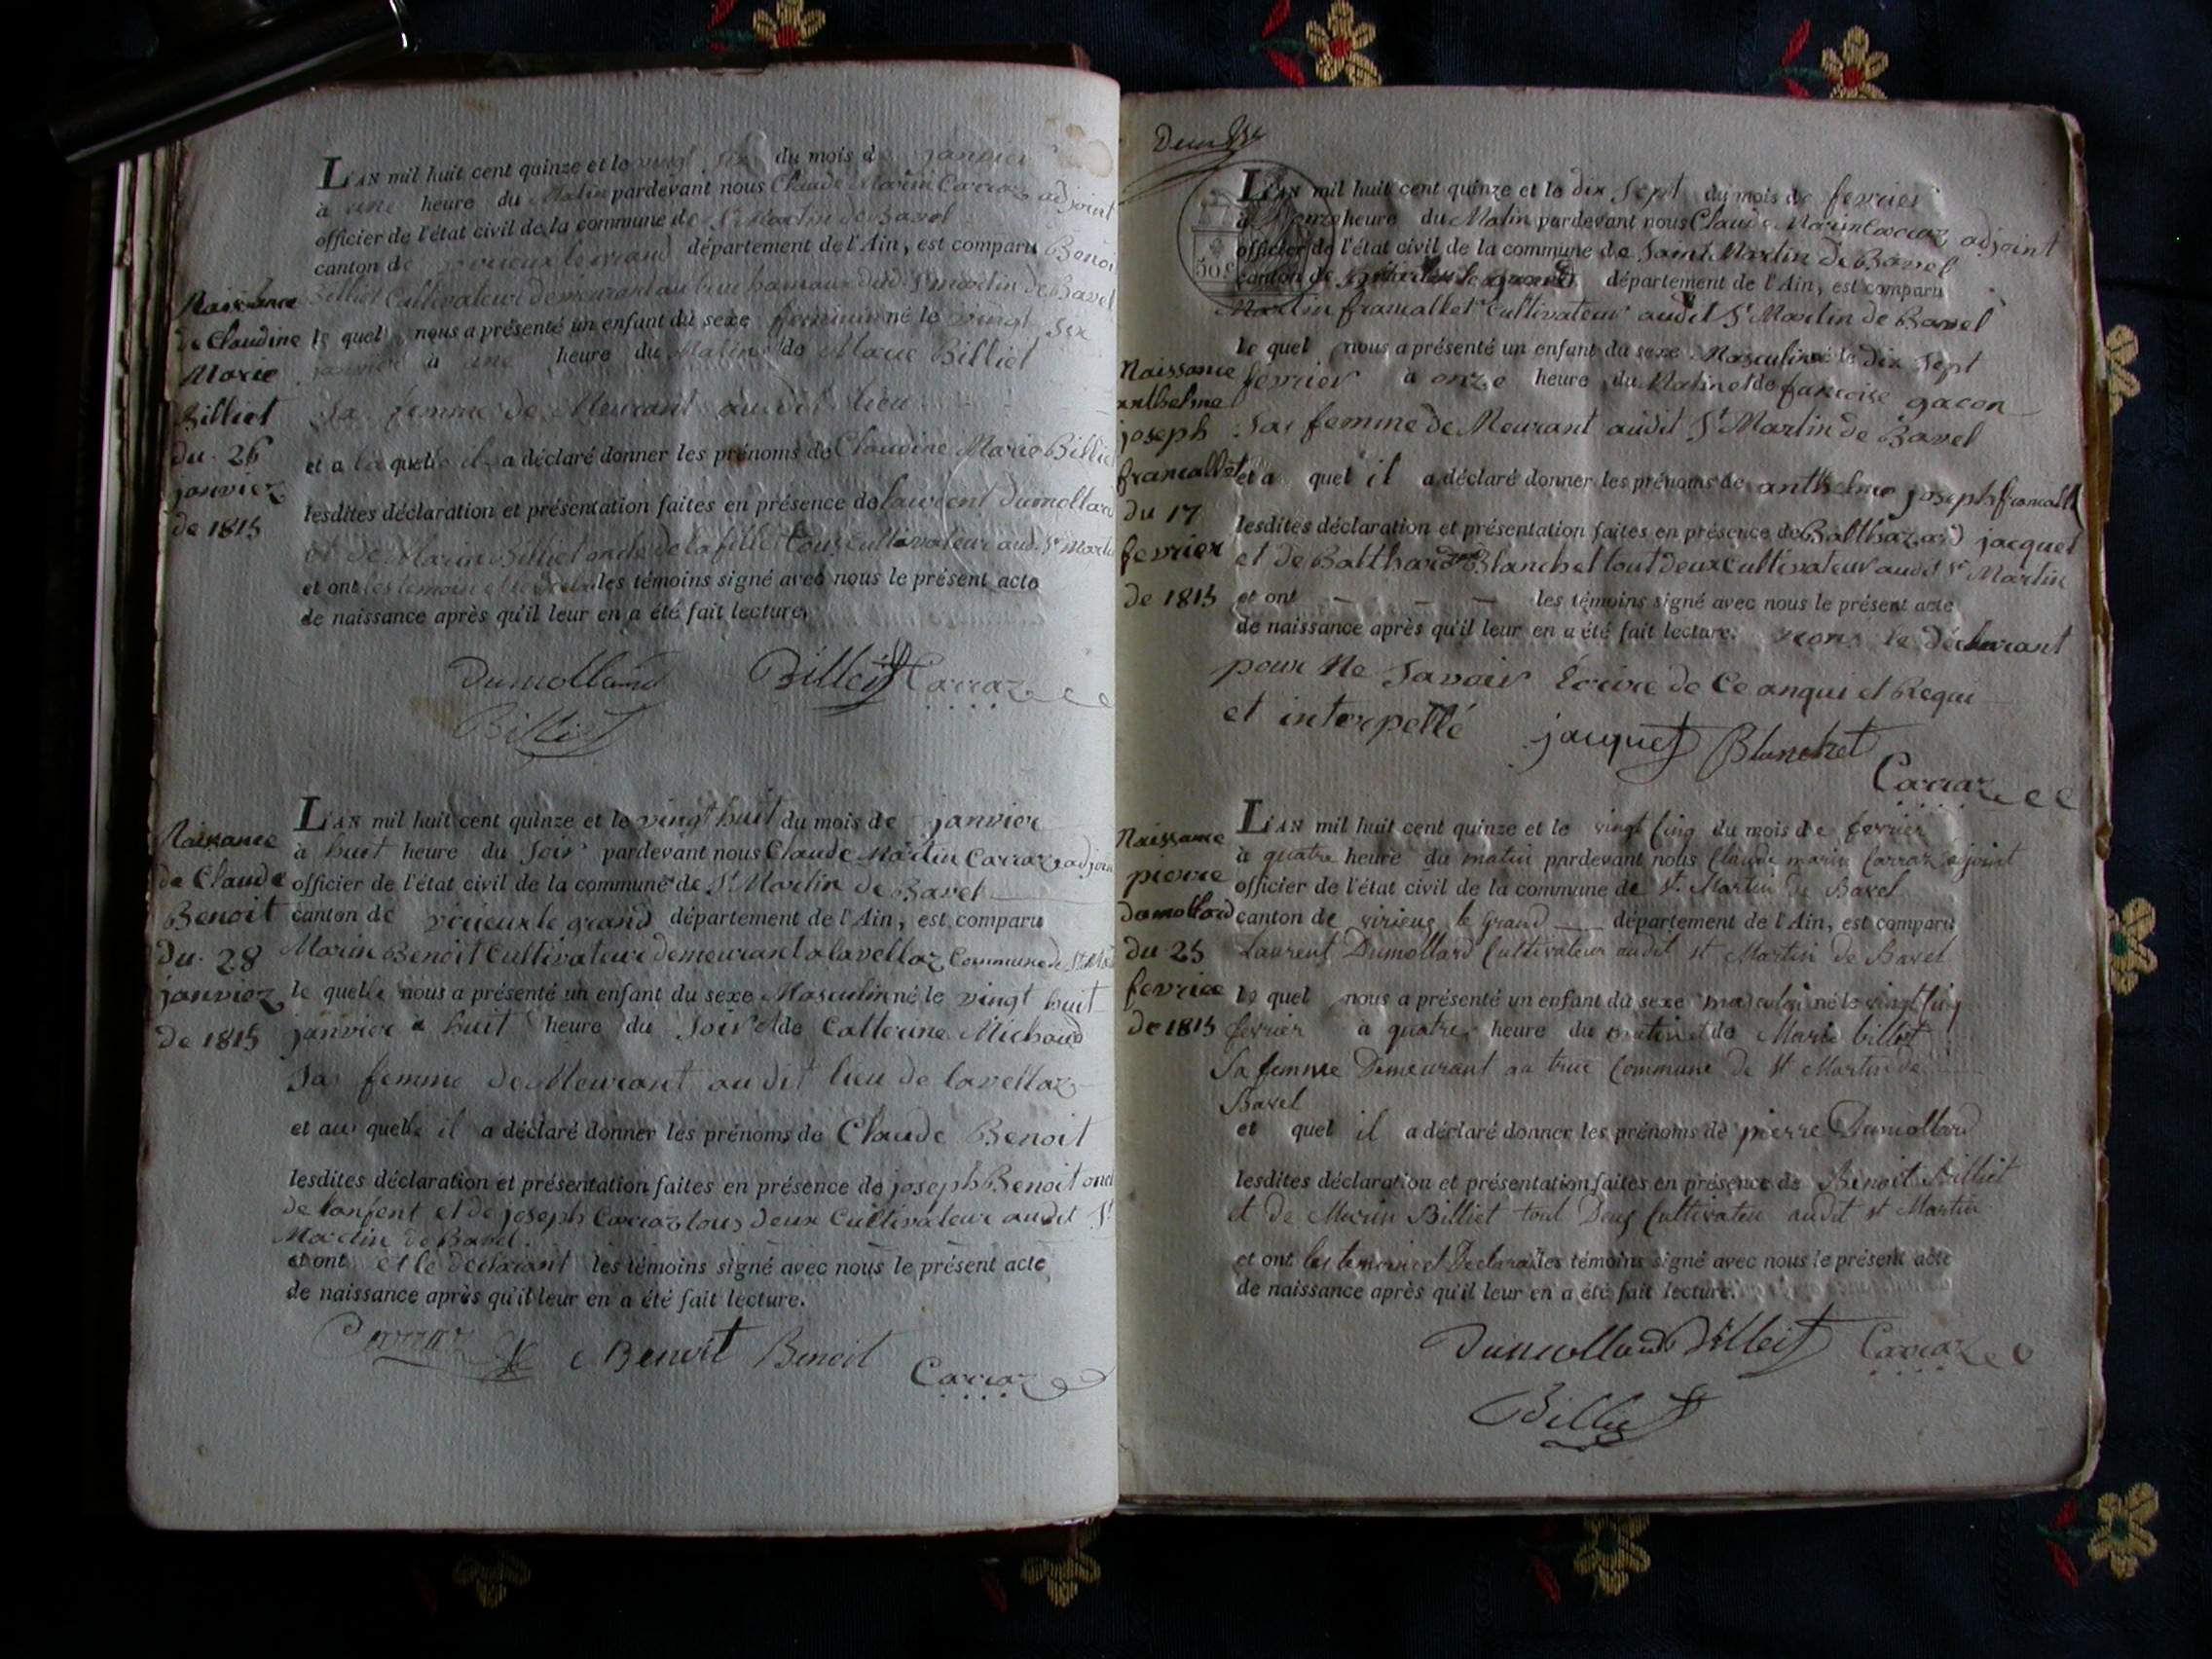 L'AN mil huit cent quinze et le vingt six du mois de janvier
à une heure du Matin pardevant nous Claude Marin Carraz adjoint
officier de l'état civil de la commune de St Martin de Bavel
canton de virieux le grand département de l'Ain, est comparu Benoi
Billiet Cultivateur demeurant au hameau dud. St martin de Bavel
le quel nous a présenté un enfant du sexe feminin né le vingt six
janvier à une heure du Matin de Marie Billiet
Sa femme de Meurant au dit lieu
et a la quelle il a déclaré donner les prénoms de Claudine Marie Billie
lesdites déclaration et présentation faites en présence de laurent dumollard
et de Marin Billiet oncle de la fille tous cultivateur aud. St Martin
et ont les temoin et le les témoins signé avec nous le présent acte
de naissance après qu'il leur en a été fait lecture.
Naissance
de Claudine
Marie
Billiet
du 26
janvier
de 1815
Dumollard Billiet Carraz
Billiet
L'AN mil huit cent quinze et le vingt huit du mois de janvier
à huit heure du Soir pardevant nous Claude Martin Carraz adjoin
officier de l'état civil de la commune de St Martin de Bavel
canton de virieux le grand département de l'Ain, est comparu
Marin Benoit Cultivateur demeurant a lavellaz Commune de St
le quelle nous a présenté un enfant du sexe Masculin né le vingt huit
janvier à huit heure du Soir de Catterine Michaud
Sa femme de Meurant au dit lieu de lavellaz
et au quelle il a déclaré donner les prénoms de Claude Benoit
lesdites déclaration et présentation faites en présence de joseph Benoit oncl
de lanfent et de joseph Carraz tous deux Cultivateur audit St
Martin de Bavel
et ont et le declarant les témoins signé avec nous le présent acte
de naissance après qu'il leur en a été fait lecture.
Naissance
de Claude
Benoit
du 28
janvier
de 1815
Carraz Benoit Benoit
Carraz
L'AN mil huit cent quinze et le dix Sept du mois de fevrier
à onze heure du Matin pardevant nous Claude Marin Carraz adjoint
officier de l'état civil de la commune de Saint Martin de Bavel
canton de virieux le grand département de l'Ain, est comparu
Martin francallet Cultivateur audit St Martin de Bavel
le quel nous a présenté un enfant du sexe Masculin né le dix Sept
fevrier à onze heure du Matin et de francoise gacon
Sa femme de Meurant audit St Martin de Bavel
et a quel il a déclaré donner les prénoms de anthelme joseph francall
lesdites déclaration et présentation faites en présence de Balthazard jacquet
et de Balthard Blanchet tout deux cultivateur audit St Martin
et ont les témoins signé avec nous le présent acte
de naissance après qu'il leur en a été fait lecture. non le déclarant
pour Ne Savoir Ecrire de Ce anqui et Requi
et interpellé jacquet Blanchet
Carraz
Naissance
anthelme
joseph
francallet
du 17
fevrier
de 1815
L'AN mil huit cent quinze et le vingt cinq du mois de fevrier
à quatre heure du matin pardevant nous Claude marin Carraz ajoint
officier de l'état civil de la commune de st. Martin de Bavel
canton de virieux le Grand département de l'Ain, est comparu
Laurent Dumollard Cultivateur audit st Martin de Bavel
le quel nous a présenté un enfant du sexe masculin né le vingt cinq
fevrier à quatre heure du matin et de Marie billiet
Sa femme Demeurant au truc Commune de St Martin de
Bavel
et quel il a déclaré donner les prénoms de pierre Dumollard
lesdites déclaration et présentation faites en présence de Benoit Billiet
et de Marin Billiet tout Deux Cultivateu audit st Martin
et ont les temoins et Declarant les témoins signé avec nous le présent acte
de naissance après qu'il leur en a été fait lecture.
Naissance
pierre
dumollard
du 25
fevrier
de 1815
Dumollard Billiet Carraz
Billiet